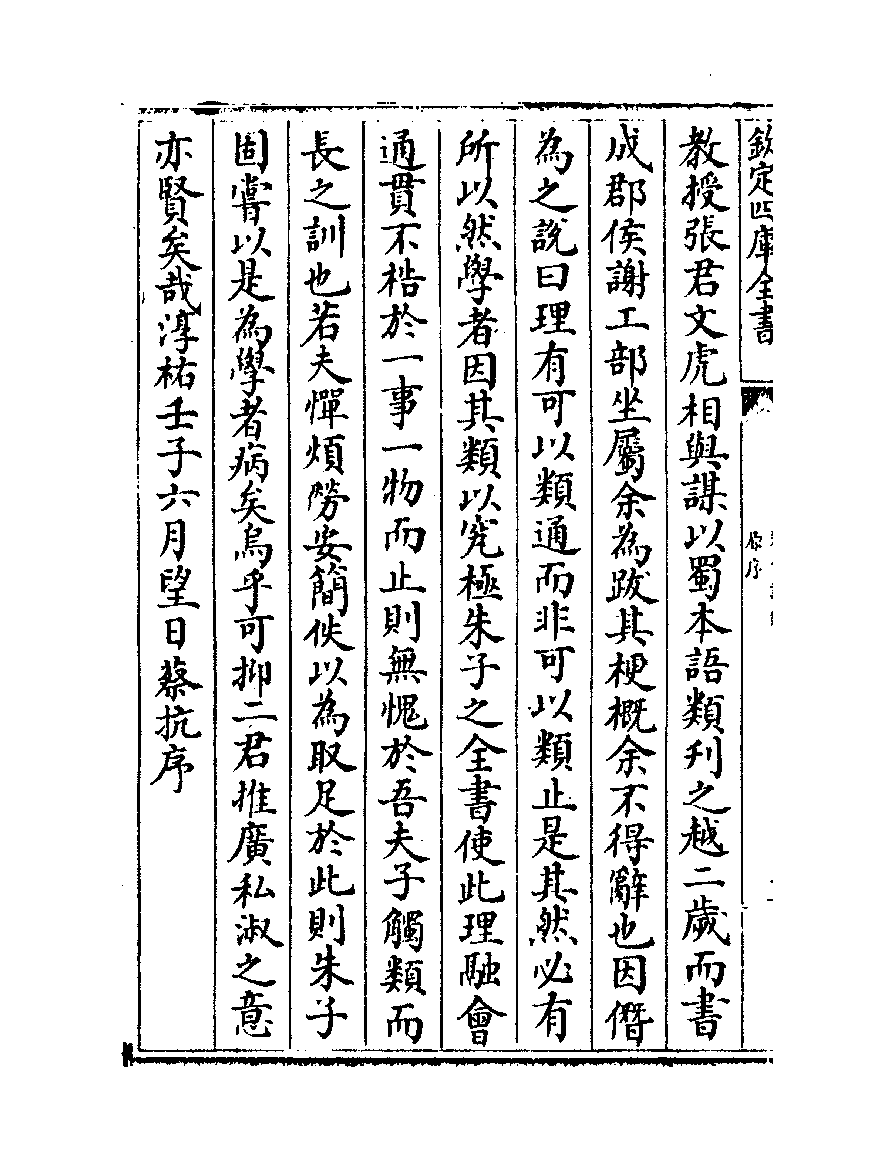 欽定四庫全書
原序
教授張君文虎相與謀以蜀本語類刋之越二歲而書
成郡侯謝工部坐屬余為跋其梗概余不得辭也因僭
為之説曰理有可以類通而非可以類止是其然必有
所以然學者因其類以究極朱子之全書使此理融會
通貫不梏於一事一物而止則無愧於吾夫子觸類而
長之訓也若夫憚煩勞安簡佚以為取足於此則朱子
固嘗以是為學者病矣烏乎可抑二君推廣私淑之意
亦賢矣哉淳祐壬子六月望日蔡抗序